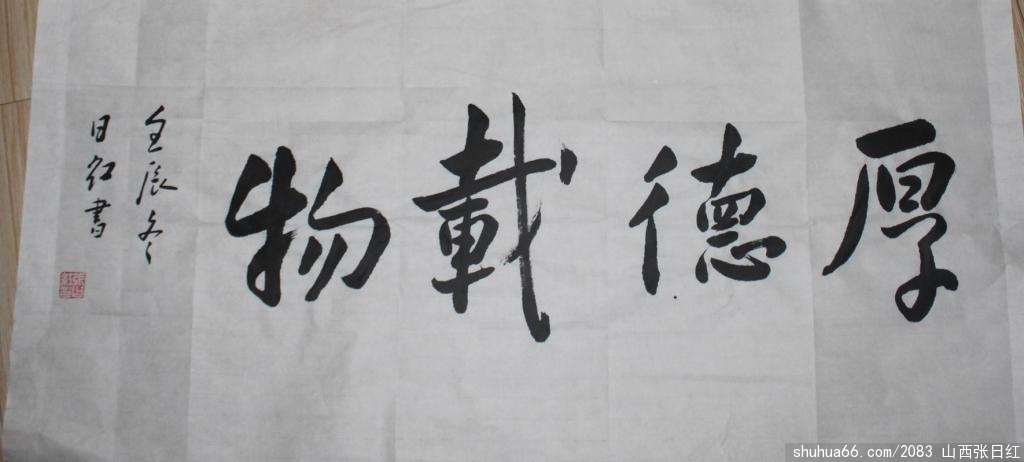 厚德載物
壬辰冬
日红書
shuhua66.com/2083 山西张日红